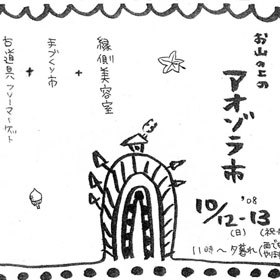 お山の上の
アオゾラ市
'08
10/12-13
(日)
(祝・
11時〜夕暮れ
縁側美容室
+
手づくり市
+
古道具フリーマーケット